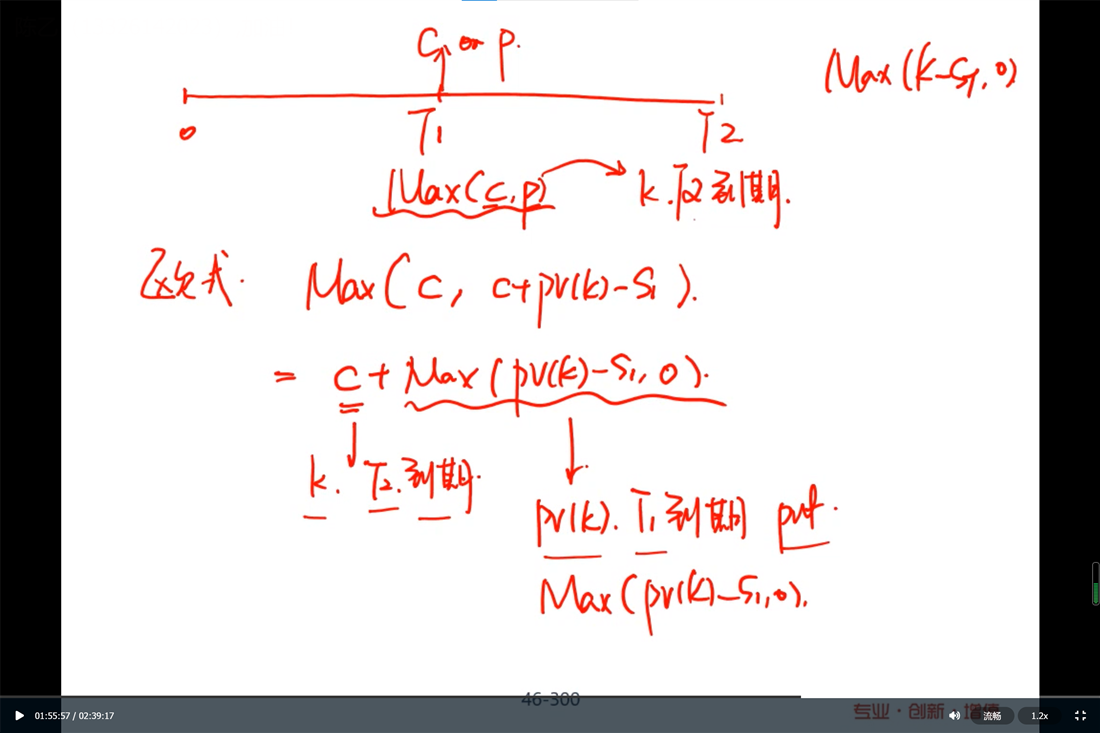 C or P.
Max(K-ST, 0)
0 T1 T2
Max(C, P) K. T2到期.
欧式. Max(C, C+PV(K)-S1).
= C + Max(PV(K)-S1, 0).
K. T2.到期.
PV(K). T1到期 put.
Max(PV(K)-S1, 0).
46-300
专业·创新·增值
01:55:57 / 02:39:17 流畅 1.2x